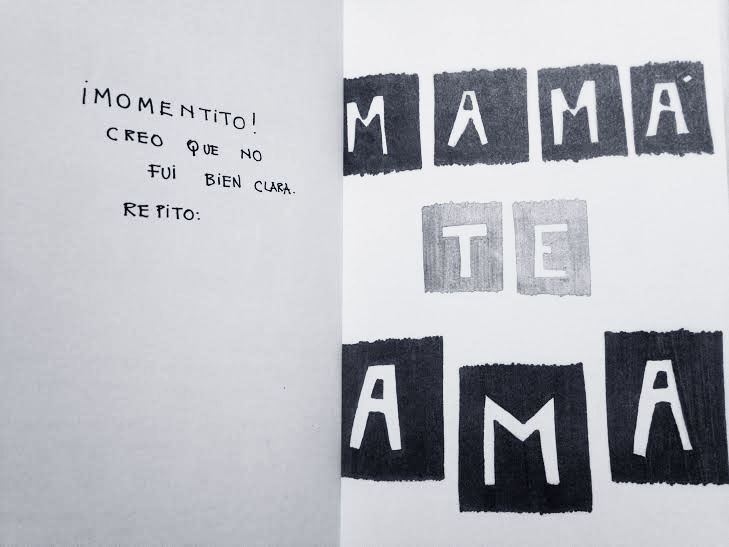 ¡MOMENTITO!
CREO QUE NO
FUI BIEN CLARA.
REPITO:
MAMÁ
TE
AMA